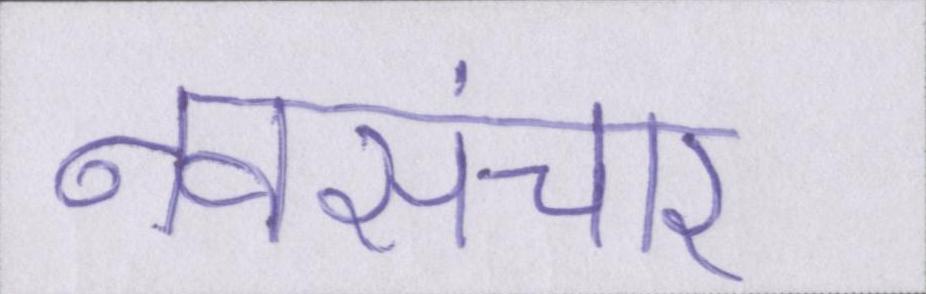 नवसंचार